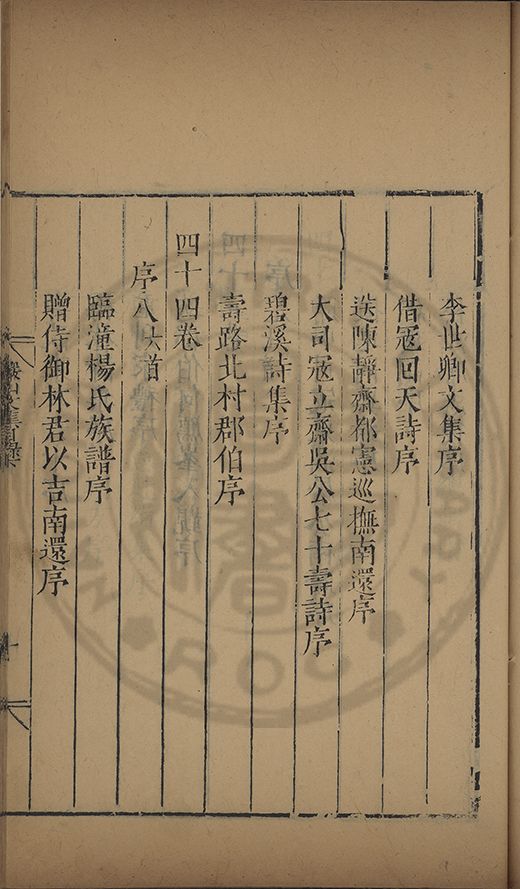 李世卿文集序
借寇回天詩序
送陳靜齋都憲巡撫南還序
大司冦立齋吳公七十壽詩序
碧溪詩集序
壽路北村郡伯序
四十四卷
序八首
臨潼楊氏族譜序
贈侍御林君以吉南還序